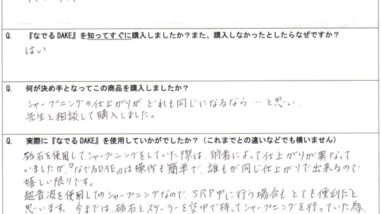 Q. 『なでるDAKE』を知ってすぐに購入しましたか？また、購入しなかったとしたらなぜですか？
はい
Q. 何が決め手となってこの商品を購入しましたか？
シャープニングの仕上がりがどれも同じになるなら…と思い、
先生と相談して購入しました。
Q. 実際に『なでるDAKE』を使用していかがでしたか？（これまでとの違いなどでも構いません）
砥石を使用してシャープニングをしていた際は、術者によって仕上がりが異なって
いましたが、『なでるDAKE』は操作も簡単で、誰もが同じ仕上がりで出来るので
嬉しい限りです。
超音波を使用してのシャープニングなので、SRP中に行う場合もとても便利だと
思います。今までは、砥石とスケーラーを空中で持ってシャープニングを行っていた為、